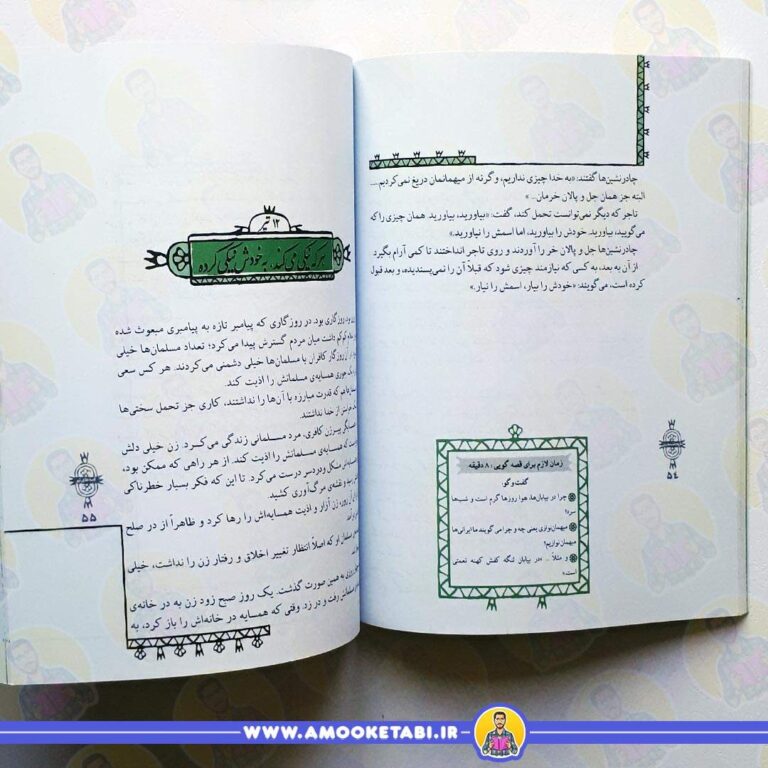 چادرنشین‌ها گفتند: «به خدا چیزی نداریم، و گرنه از میهمانمان دریغ نمی‌کردیم....
البته جز همان جل و پالان خرمان .. »
تاجر که دیگر نمی‌توانست تحمل کند، گفت: «بیاورید، بیاورید. همان چیزی را که
می‌گویید، بیاورید. خودش را بیاورید، اما اسمش را نیاورید.»
چادرنشین‌ها جل و پالان خر را آوردند و روی تاجر انداختند تا کمی آرام بگیرد.
از آن به بعد، به کسی که نیازمند چیزی شود که قبلاً آن را نمی‌پسندیده، و بعد قبول
کرده است، می‌گویند: «خودش را بیار، اسمش را نیار.»
زمان لازم برای قصه گویی: ۸ دقیقه
گفت‌وگو:
چرا در بیابان‌ها، هوا روزها گرم است و شب‌ها
سرد؟
میهمان‌نوازی یعنی چه و چرا می گویند ما ایرانی‌ها
میهمان‌نوازیم؟
و مثلاً .. «در بیابان لنگه کفش کهنه نعمتی
است.»
۵۴
۱۲ تیر
هر که نیکی می‌کند، به خودش نیکی کرده
روزگاری بود. در روزگاری که پیامبر تازه به پیامبری مبعوث شده
کم‌کم داشت میان مردم گسترش پیدا می‌کرد؛ تعداد مسلمان‌ها خیلی
آن روزگار کافران با مسلمان‌ها خیلی دشمنی می‌کردند. هر کس سعی
جوری همسایه‌ی مسلمانش را اذیت کند.
هم که قدرت مبارزه با آن‌ها را نداشتند، کاری جز تحمل سختی‌ها
از خدا نداشتند.
پیرزن کافری، مرد مسلمانی زندگی می‌کرد. زن خیلی دلش
که همسایه‌ی مسلمانش را اذیت کند. از هر راهی که ممکن بود،
مشکل و دردسر درست می‌کرد. تا این که فکر بسیار خطرناکی
و نقشه‌ی مرگ‌آوری کشید.
زن آزار و اذیت همسایه‌اش را رها کرد و ظاهراً از در صلح
مسلمان او که اصلاً انتظار تغییر اخلاق و رفتار زن را نداشت، خیلی
روزی به همین صورت گذشت. یک روز صبح زود زن به در خانه‌ی
مسلمانش رفت و در زد. وقتی که همسایه در خانه‌اش را باز کرد، به
۵۵
WWW.AMOOKETABI.IR